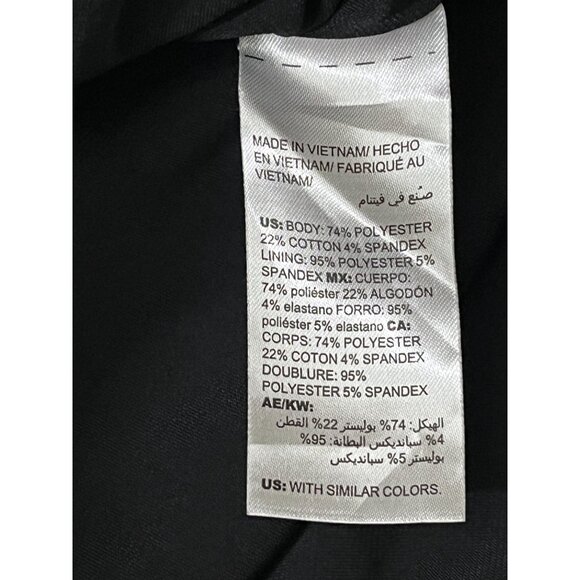 MADE IN VIETNAM/ HECHO
EN VIETNAM/ FABRIQUÉ AU
VIETNAM/
صنع في فيتنام
US: BODY: 74% POLYESTER
22% COTTON 4% SPANDEX
LINING: 95% POLYESTER 5%
SPANDEX MX: CUERPO:
74% poliéster 22% ALGODÓN
4% elastano FORRO: 95%
poliéster 5% elastano CA:
CORPS: 74% POLYESTER
22% COTON 4% SPANDEX
DOUBLURE: 95%
POLYESTER 5% SPANDEX
AE/KW:
الهيكل: 74% بوليستر 22% القطن
4% سبانديكس البطانة: 95%
بوليستر 5% سبانديكس
US: WITH SIMILAR COLORS.